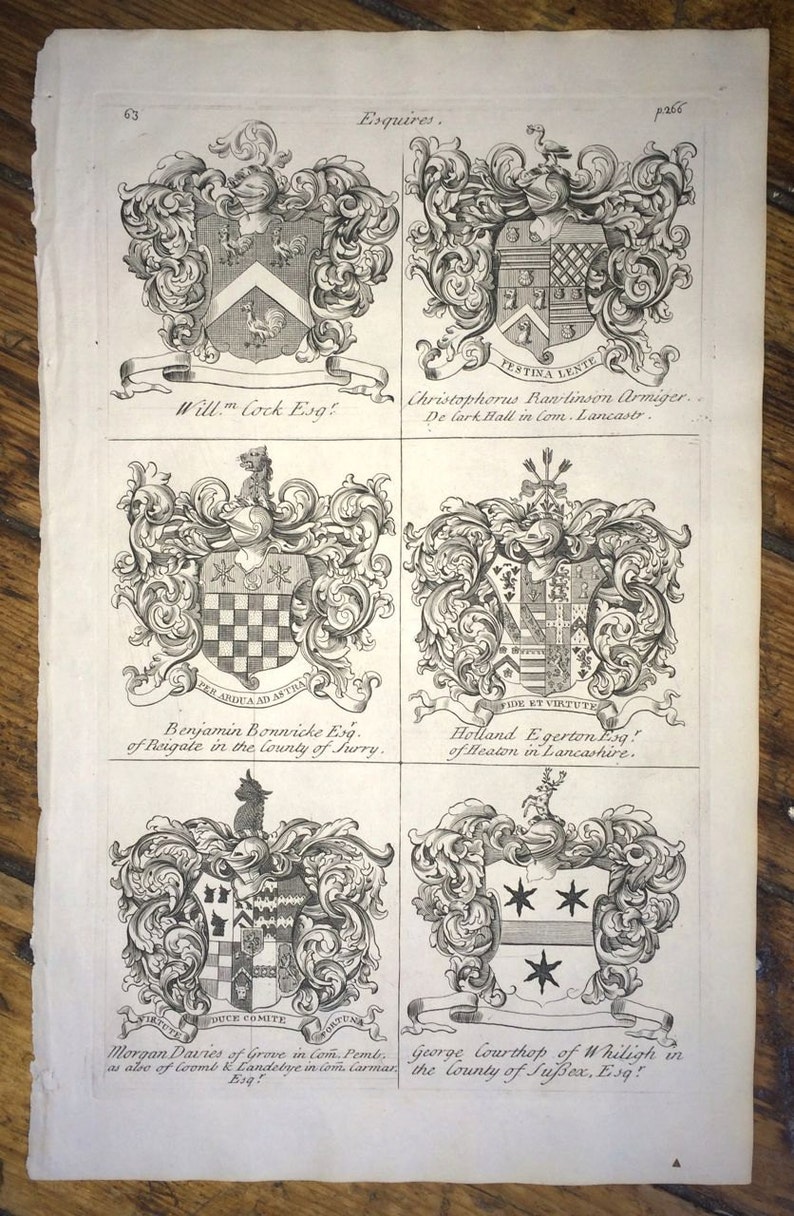 63
Esquires.
p.266
Will.m Cock Esqr.
FESTINA LENTE
Christophorus Rawlinson Armiger.
De Cark Hall in Com. Lancastr.
PER ARDUA AD ASTRA
Benjamin Bonwicke Esqr.
of Reigate in the County of Surry.
FIDE ET VIRTUTE
Holland Egerton Esqr.
of Heaton in Lancashire.
VIRTUTE DUCE COMITE FORTUNA
Morgan Davies of Grove in Com̃. Pemb.
as also of Coomb & Landebye in Com̃. Carmar.
Esqr.
George Courthop of Whiligh in
the County of Sußex, Esqr.